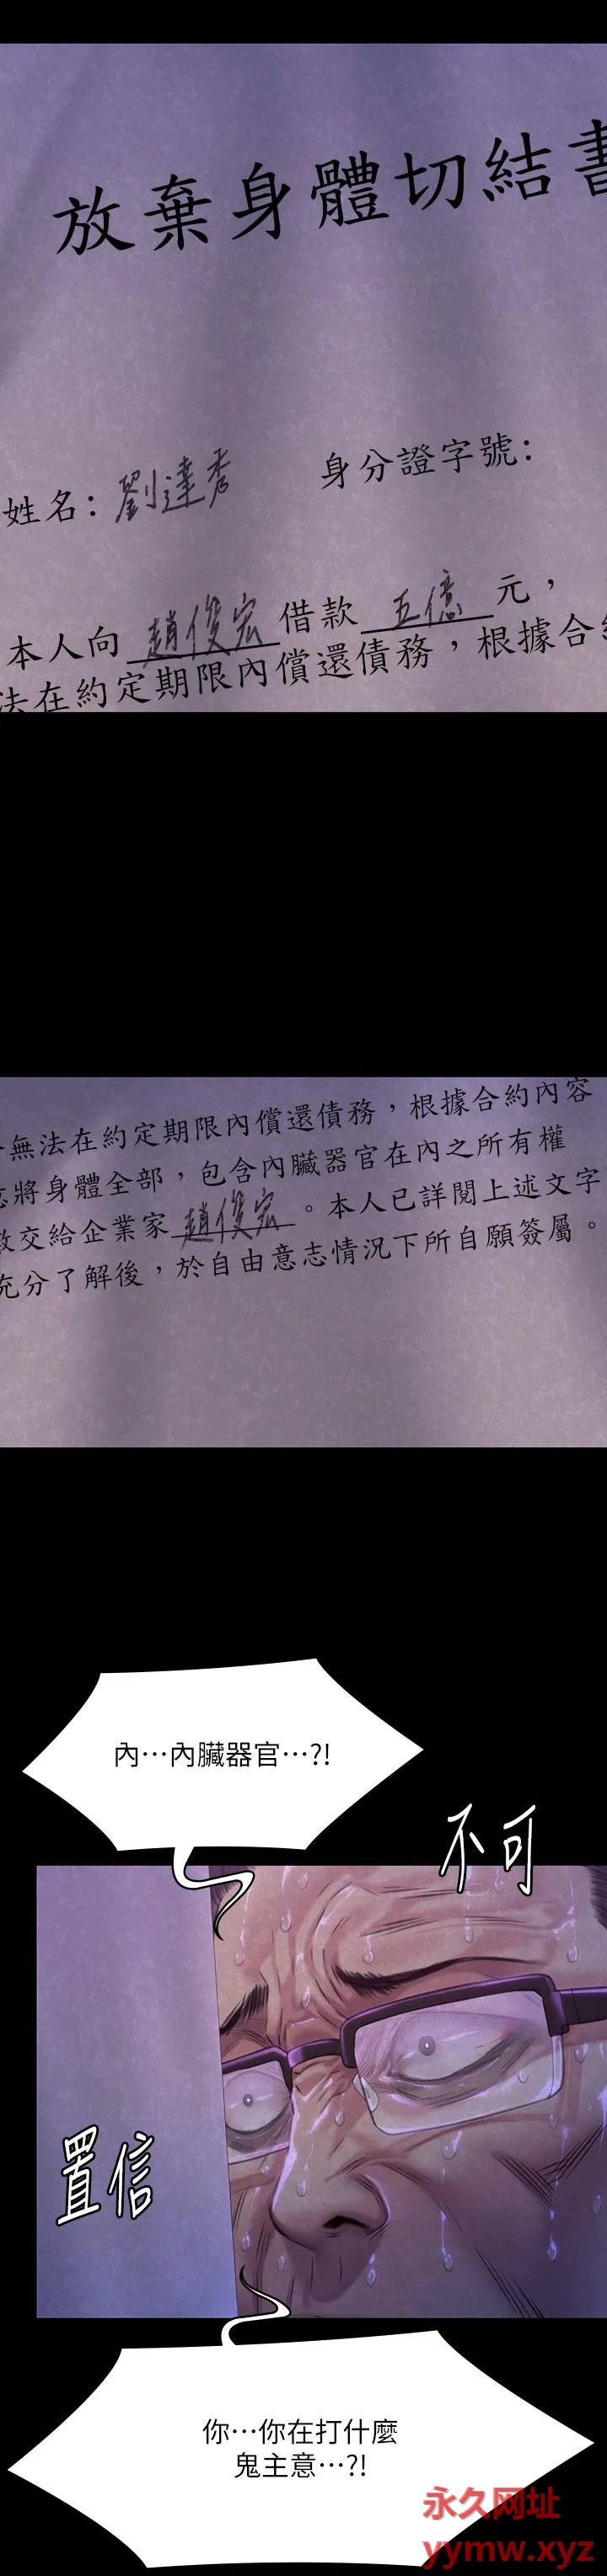 放棄身體切結書
姓名：劉達秀 身分證字號：
本人向 趙俊宏 借款 五億 元，
法在約定期限內償還債務，根據合約
無法在約定期限內償還債務，根據合約內容
將身體全部，包含內臟器官在內之所有權
交給企業家 趙俊宏 。本人已詳閱上述文字
充分了解後，於自由意志情況下所自願簽屬。
內…內臟器官…?!
不可
置信
你…你在打什麼
鬼主意…?!
永久网址
yymw.xyz